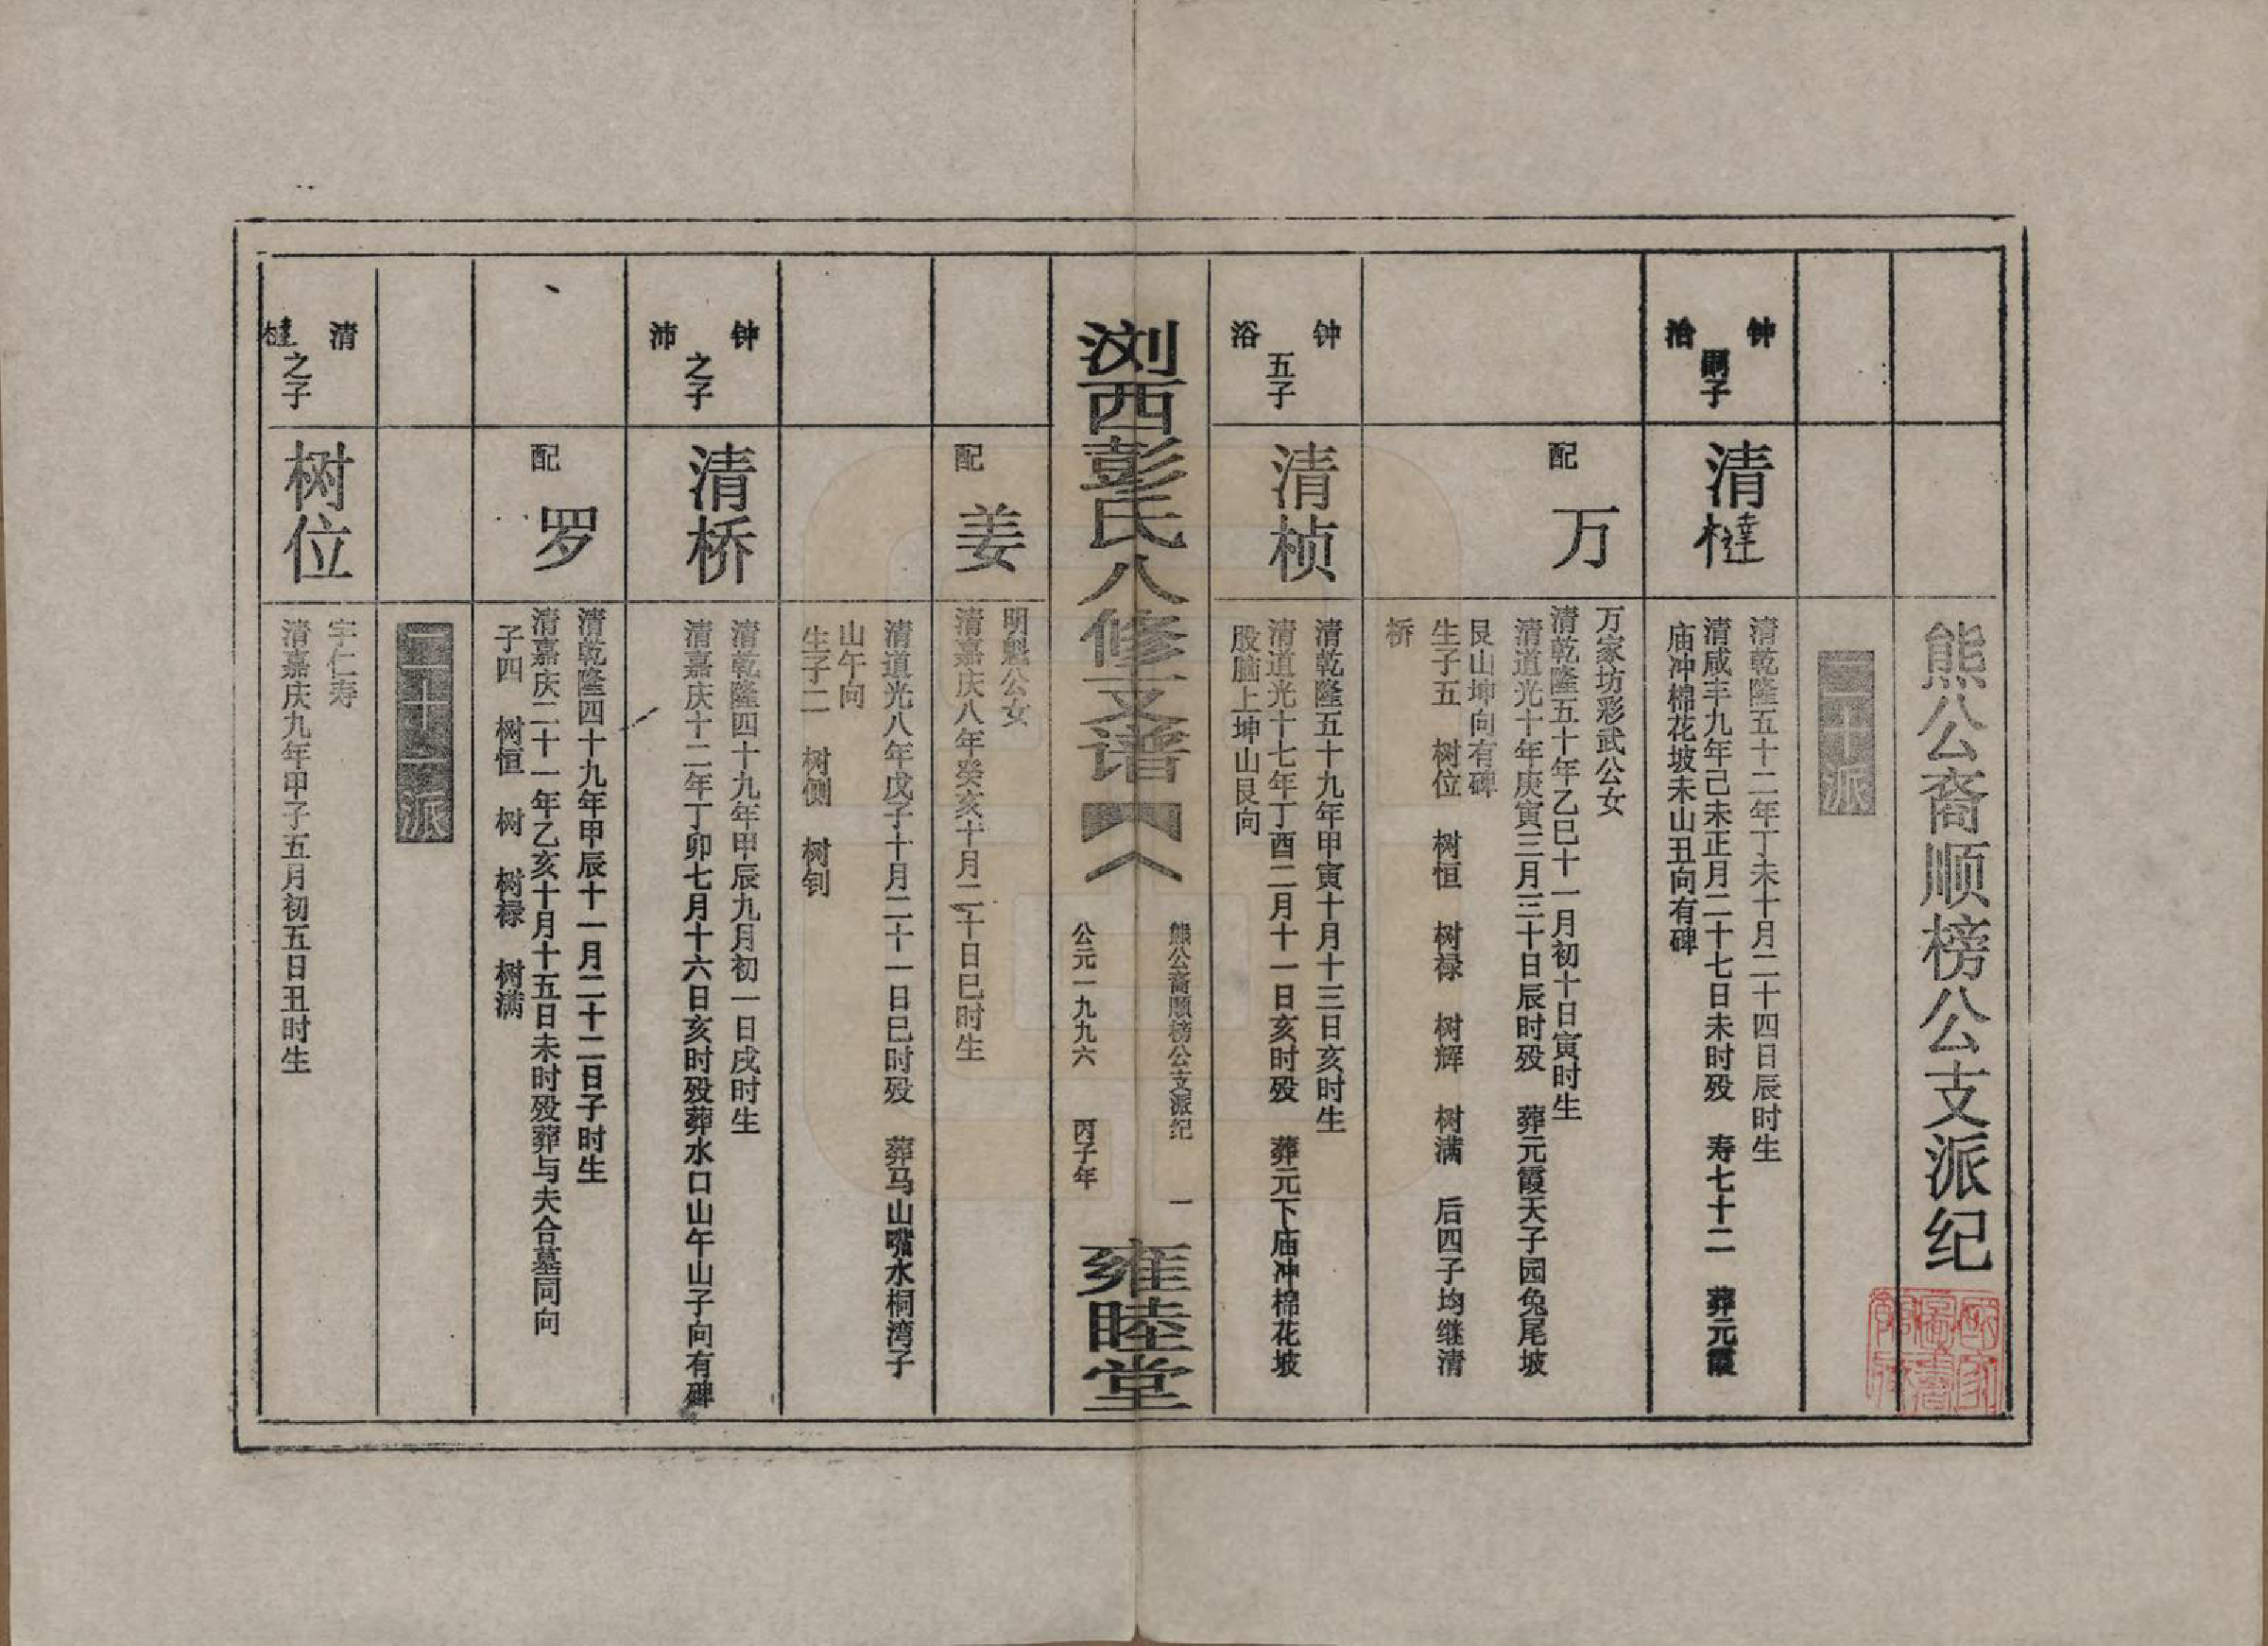 熊公裔顺榜公支派纪
二十派
钟治嗣子
清㯚
清乾隆五十二年丁未十月二十四日辰时生
清咸丰九年己未正月二十七日未时殁 寿七十二 葬元霞
庙冲棉花坡未山丑向有碑
配 万
万家坊彩武公女
清乾隆五十年乙巳十一月初十日寅时生
清道光十年庚寅三月三十日辰时殁 葬元霞天子园兔尾坡
艮山坤向有碑
生子五 树位 树恒 树禄 树辉 树满 后四子均继清
桥
钟浴五子
清桢
清乾隆五十九年甲寅十月十三日亥时生
清道光十七年丁酉二月十一日亥时殁 葬元下庙冲棉花坡
股脑上坤山艮向
浏西彭氏八修支谱
熊公裔顺榜公支派纪 一
公元一九九六 丙子年
雍睦堂
配 姜
明魁公女
清嘉庆八年癸亥十月二十日巳时生
清道光八年戊子十月二十一日巳时殁 葬马山嘴水桐湾子
山午向
生子二 树侧 树钊
钟沛之子
清桥
清乾隆四十九年甲辰九月初一日戌时生
清嘉庆十二年丁卯七月十六日亥时殁葬水口山午山子向有碑
配 罗
清乾隆四十九年甲辰十一月二十二日子时生
清嘉庆二十一年乙亥十月十五日未时殁葬与夫合墓同向
子四 树恒 树 树禄 树满
二十一派
清㯚之子
树位
字仁寿
清嘉庆九年甲子五月初五日丑时生